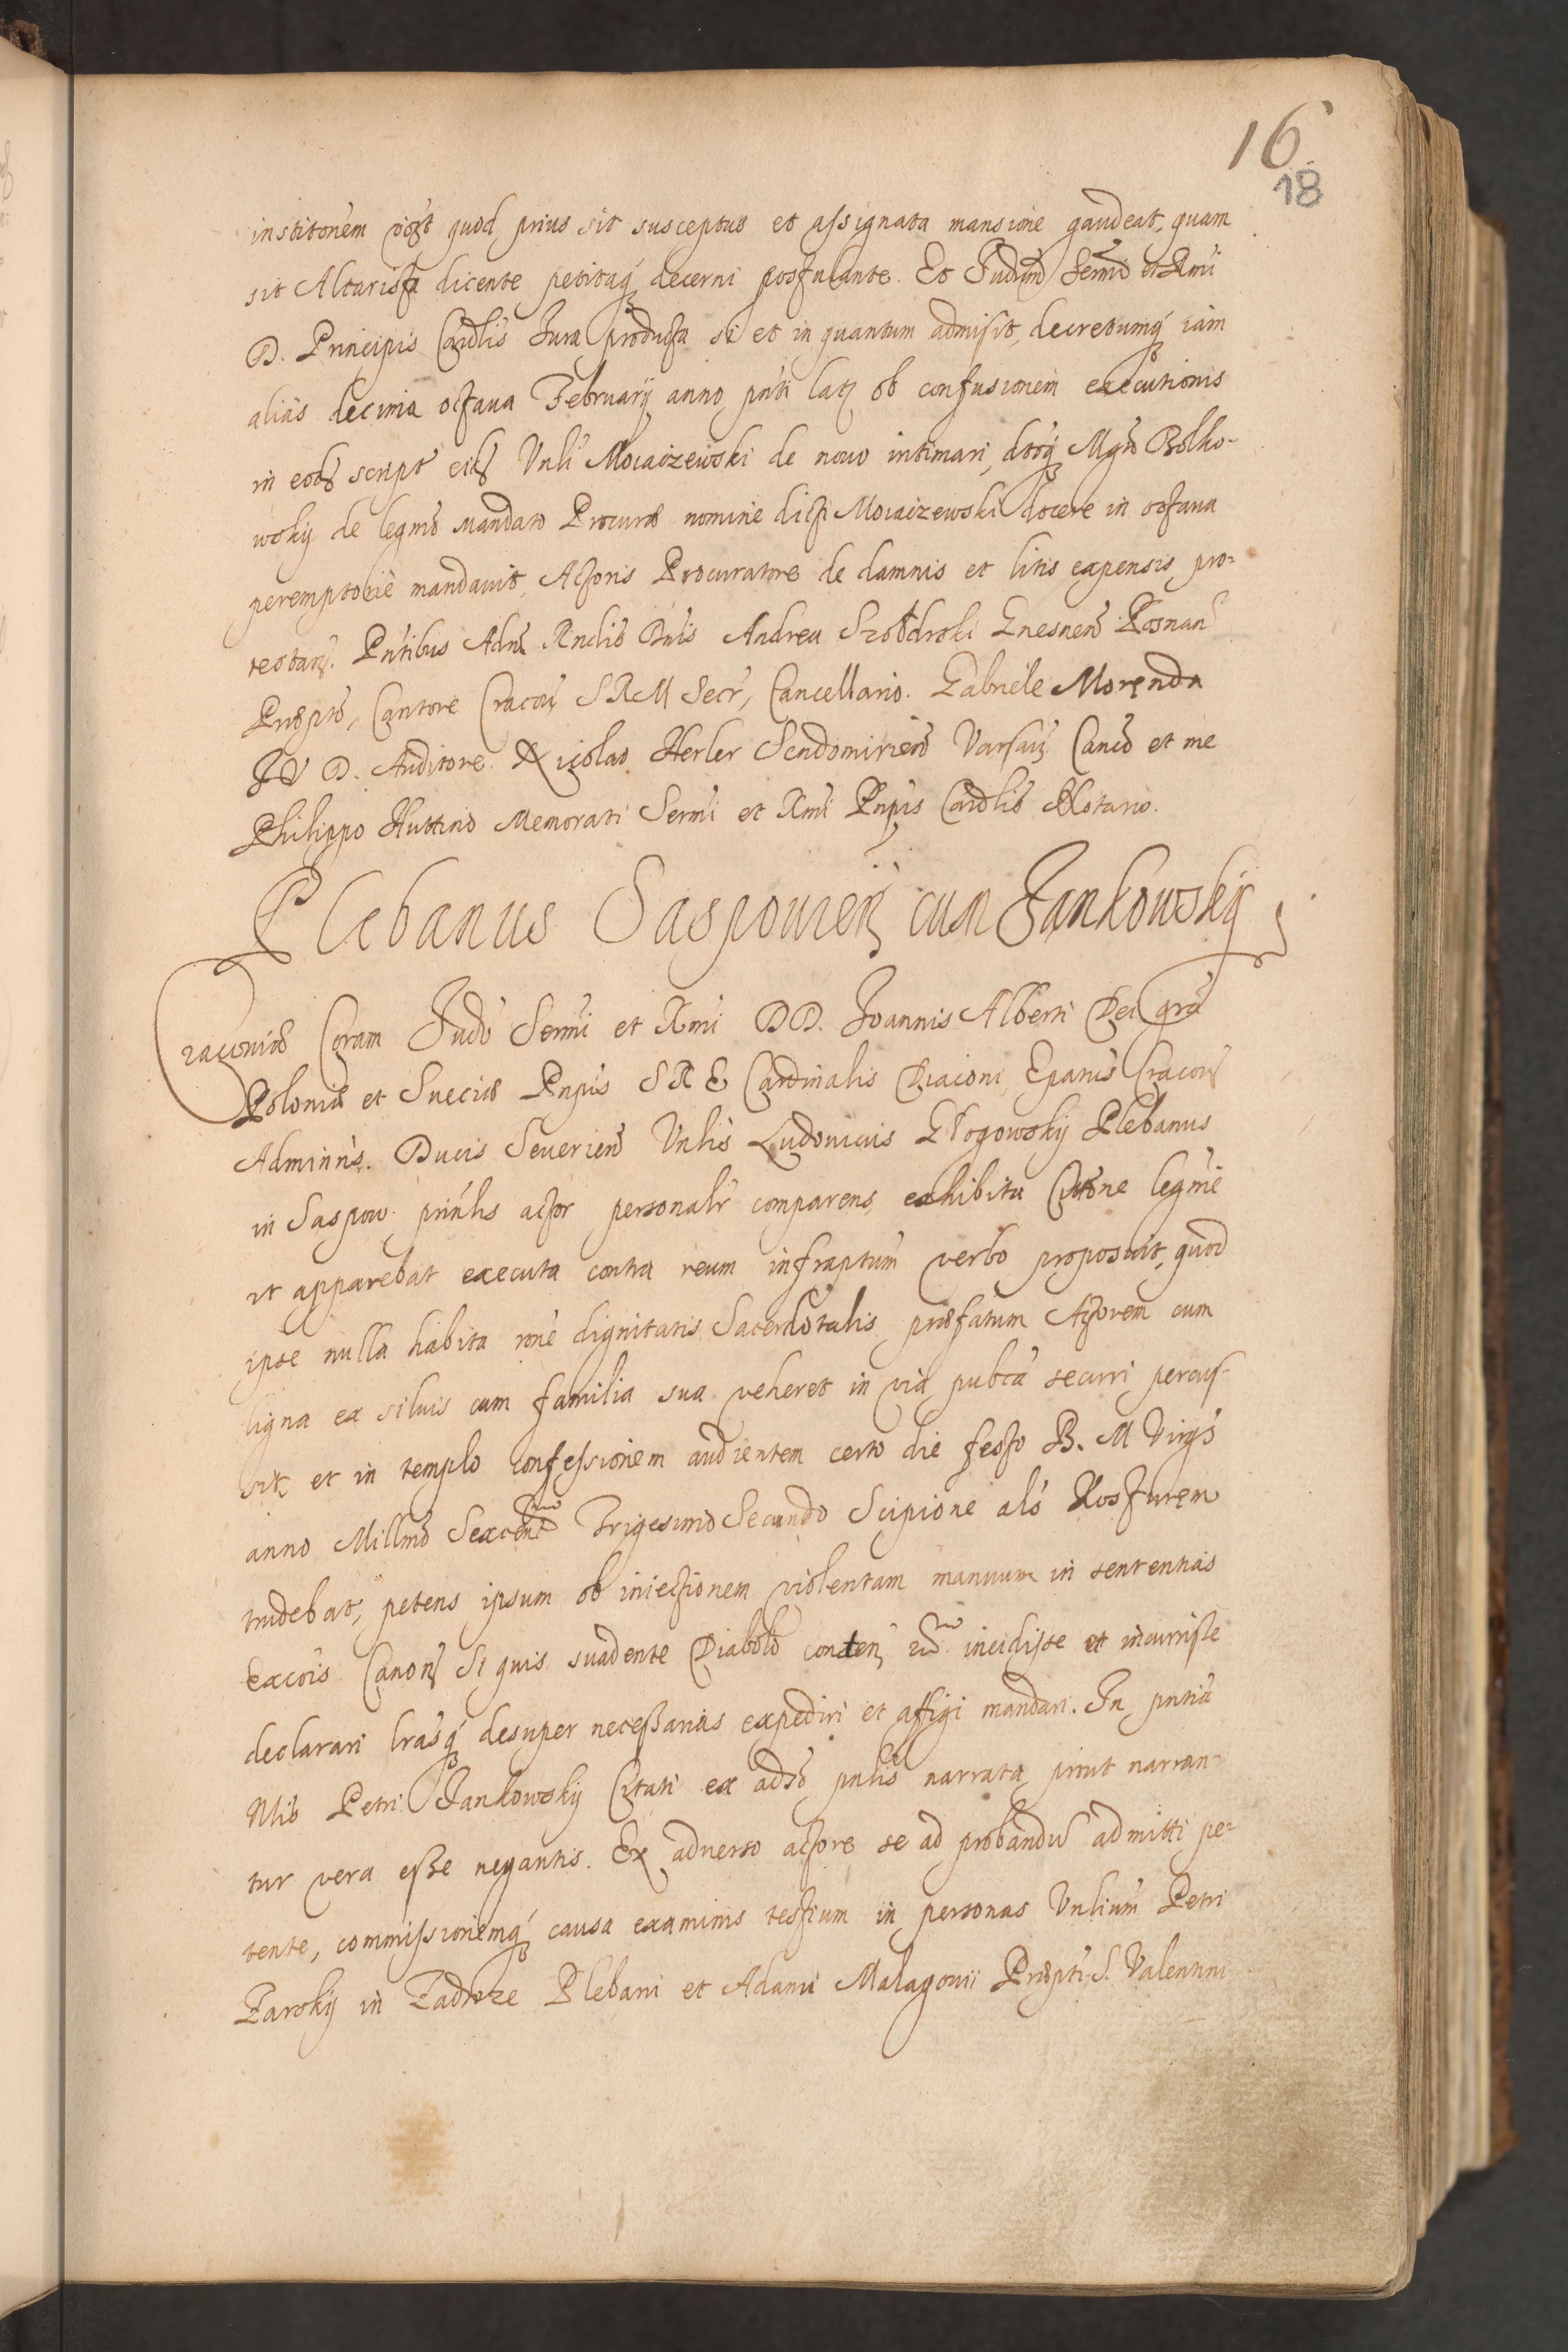 16
18
institonem quod prius sit susceptus et assignata mansione gaudeat, quam
sit Altarista dicente petitaq́ decerni postulante. Et Judm̃ Sermi et Rmi
D. Principis Cardlis Jura producta si et in quantum admisit, decretumq́ iam
alias decima octaua Februarij anno pñti latũ ob confusionem executionis
in script Vnli Mocaizewski de nouo intimari, Mgro Bolko-
wskij de legmo mandato Procurae nomine dicti Mocaizewski docere in octaua
peremptorie mandauit, Actoris Procuratore de damnis et litis expensis pro-
testan. Pñtibus Adm Rndis Dnis Andrea Szołdrski Gnesnen Posnan
Praepto, Cantore Cracou S R M Secr, Cancellario. Gabriele Morenda
J V D. Auditore. Nicolao Herler Sendomirien Varsau Canco et me
Philippo Huttino Memorati Sermi et Rmi Pnpis Cardlis Notario.
Plebanus Saspouien cum Jankowskij
Cracouiae Coram Judo Sermi et Rmi D D. Joannis Alberti Dei gra
Poloniae et Sueciae Pnpis S R E Cardinalis Diaconi, Epatus Cracou
Adminris. Ducis Seuerien Vnlis Ludouicus Głogowskij Plebanus
in Saspow prinlis actor personalr comparens, exhibita Citone legme
ut apparebat executa contra reum infraptum verbo proposuit, quod
ipse nulla habita rone dignitatis Sacerdotalis praefatum Actorem cum
ligna ex siluis cum familia sua veheret in via pubca securi percus-
sit et in templo confessionem audientem certo die festo B. M Virgs
anno Millmo Sexcentmo Trigesimo Secundo Scipione als Kosturem
trudebat, petens ipsum ob iniectionem violentam manuum in sententias
excois Canon Si quis suadente Diabolo conten incidisse et incurrisse
declarari lrasq́ desuper necessarias expediri et affigi mandari. In pntia
Nlis Petri Jankowskij Citati ex adso pnlis narrata, prout narran-
tur vera esse negantis. Ex aduerso actore se ad probandũ admitti pe-
tente, commissionemq́ causa examinis testium in personas Vnlium Petri
Zarskij in Zadroze Plebani et Adami Malagonii Praepti S. Valentini